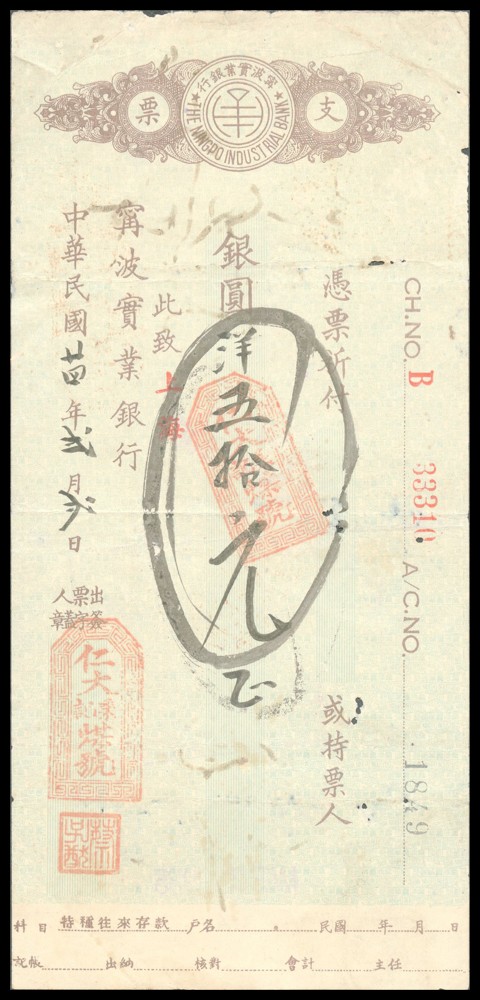 行銀業實波甯
THE NINGPO INDUSTRIAL BANK
支票
CH.NO. B 33310 A/C.NO. 1849
憑票祈付
或持票人
銀圓洋五拾元正
此致
上海
甯波實業銀行
中華民國廿四年弍月 日
出票人
簽字蓋章
仁大
號
科目 特種往來存款 戶名 民國 年 月 日
記帳 出納 核對 會計 主任